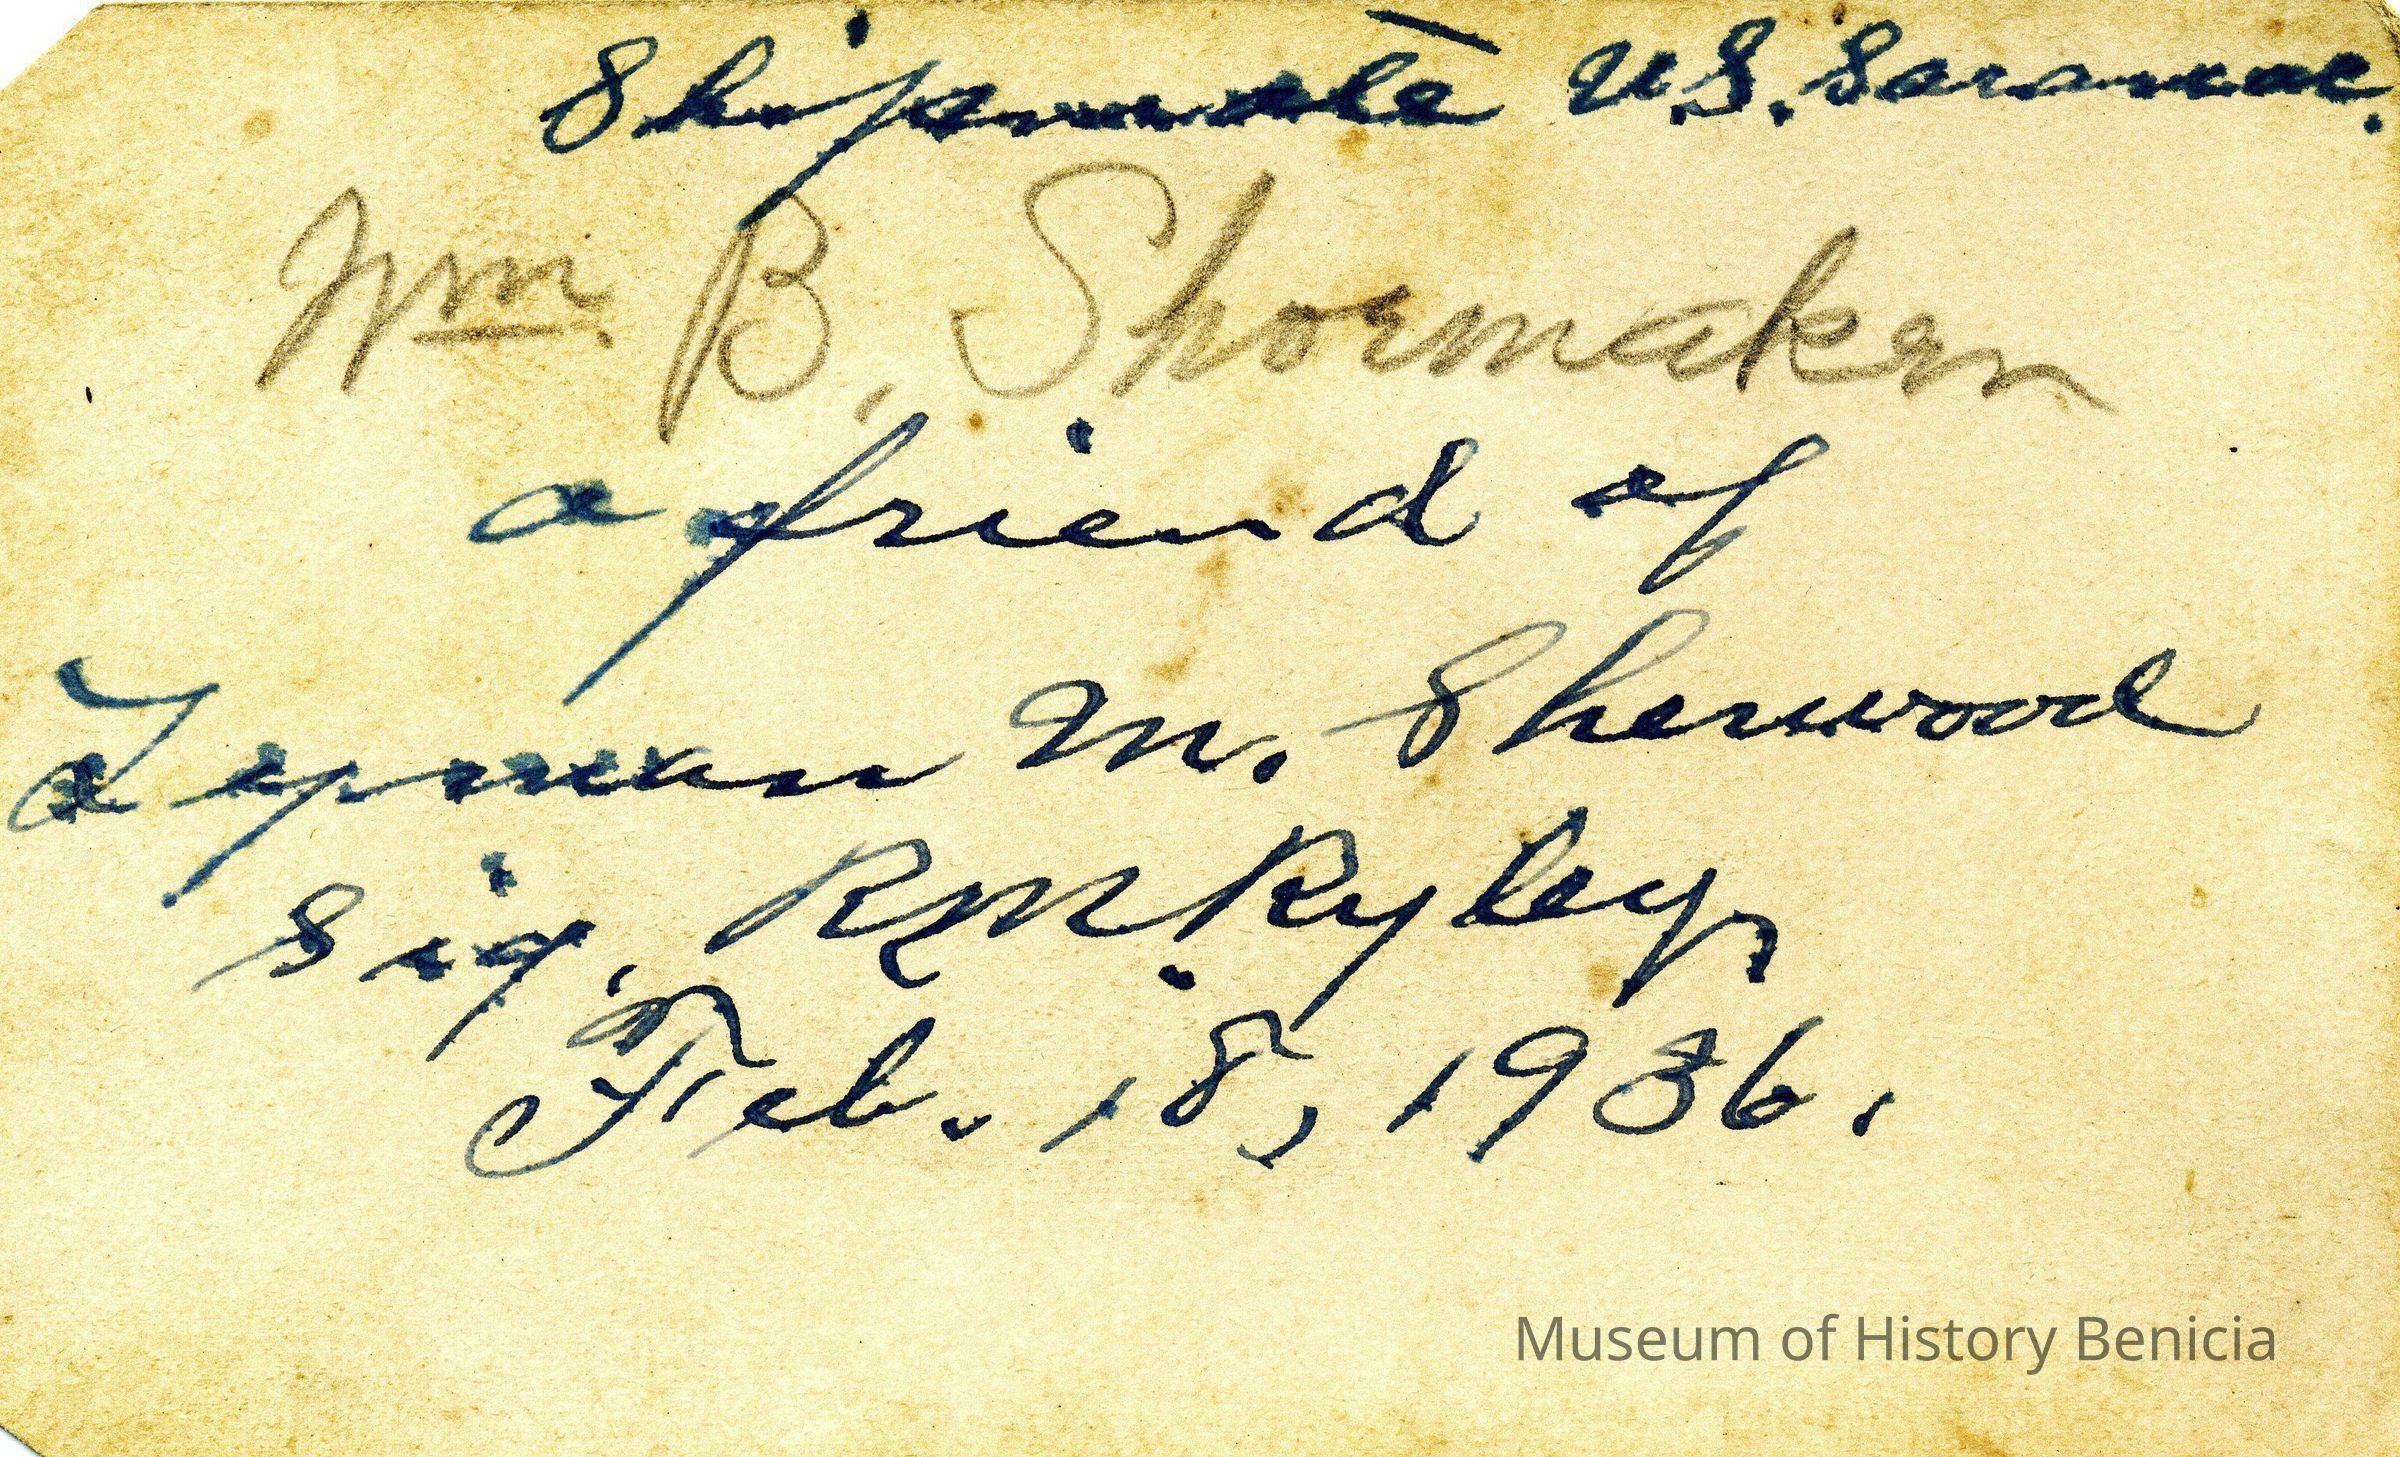 Shipmate U.S. Saranac.
Wm. B. Shoemaker
a friend of
Lyman M. Sherwood
sig. RM Ryley,
Feb. 18, 1936.
Museum of History Benicia